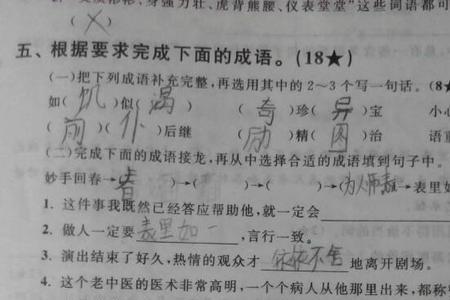 ( X )
五、根据要求完成下面的成语。(18★)
(一)把下列成语补充完整,再选用其中的2~3个写一句话。(8★
如(饥)似(渴) (奇)珍(异)宝 小心
(前)(仆)后继 (励)精(图)治 语重
(二)完成下面的成语接龙,再从中选择合适的成语填到句子中。
妙手回春→(春 )→( )→( )→(为人师表)→表里如
1. 这件事我既然已经答应帮助他,就一定会
2. 做人一定要表里如一,言行一致。
3. 演出结束了好久,热情的观众才依依不舍地离开剧场。
4. 这个老中医的医术非常高明,一个个病人从他那里出来,都称